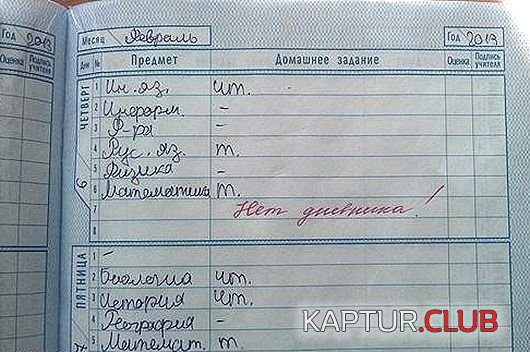 Год 2013
Месяц Февраль
Год 2013
Оценка Подпись учителя
Дни № Предмет Домашнее задание Оценка Подпись учителя
ЧЕТВЕРГ
1 Ин. яз. чт.
2 Информ. -
3 Ф-ра -
4 Рус. яз. т.
5 Физика -
6 Математика т.
7 Нет дневника!
8
ПЯТНИЦА
1 -
2 Биология чт.
3 История чт.
4 География -
5 Математ. т.
KAPTUR.CLUB